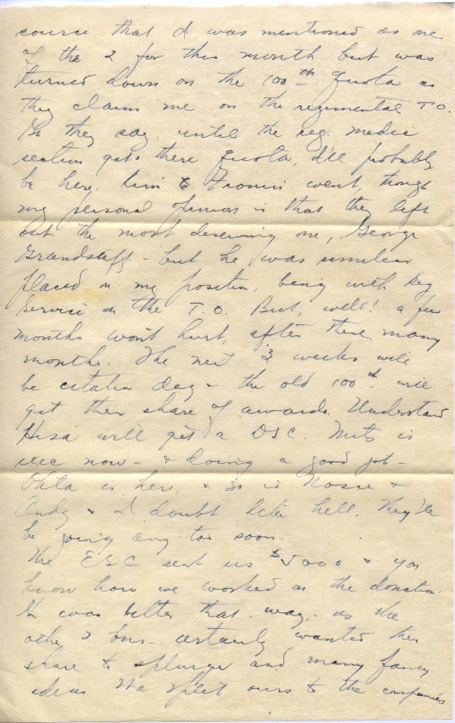 course that I was mentioned as one
of the 2 for this month but was
turned down on the 100th quota as
they claim me on the regimental T.O.
So they say, until the reg. medic
section gets there quota, I'll probably
be here. Kim & Fromm went, though
my personal opinion is that they left
out the most deserving one, George
Grandstaff - but he was
placed in my position, being with Reg
Service on the T.O. But, well! a few
months won't hurt, after these many
months. The next 3 weeks will
be citation day - the old 100th will
get their share of awards. Understand
Hisa will get a DSC. Mits is
now - & doing a good job -
Ohta is here & so is &
Andy & I doubt like hell, they'll
be going any too soon.
The ESC sent us $5000 & you
know how we worked as the donation.
It was better that way - as the
other 2 bns. certainly wanted their
share to splurge and many fancy
ideas. We split ours to the companies